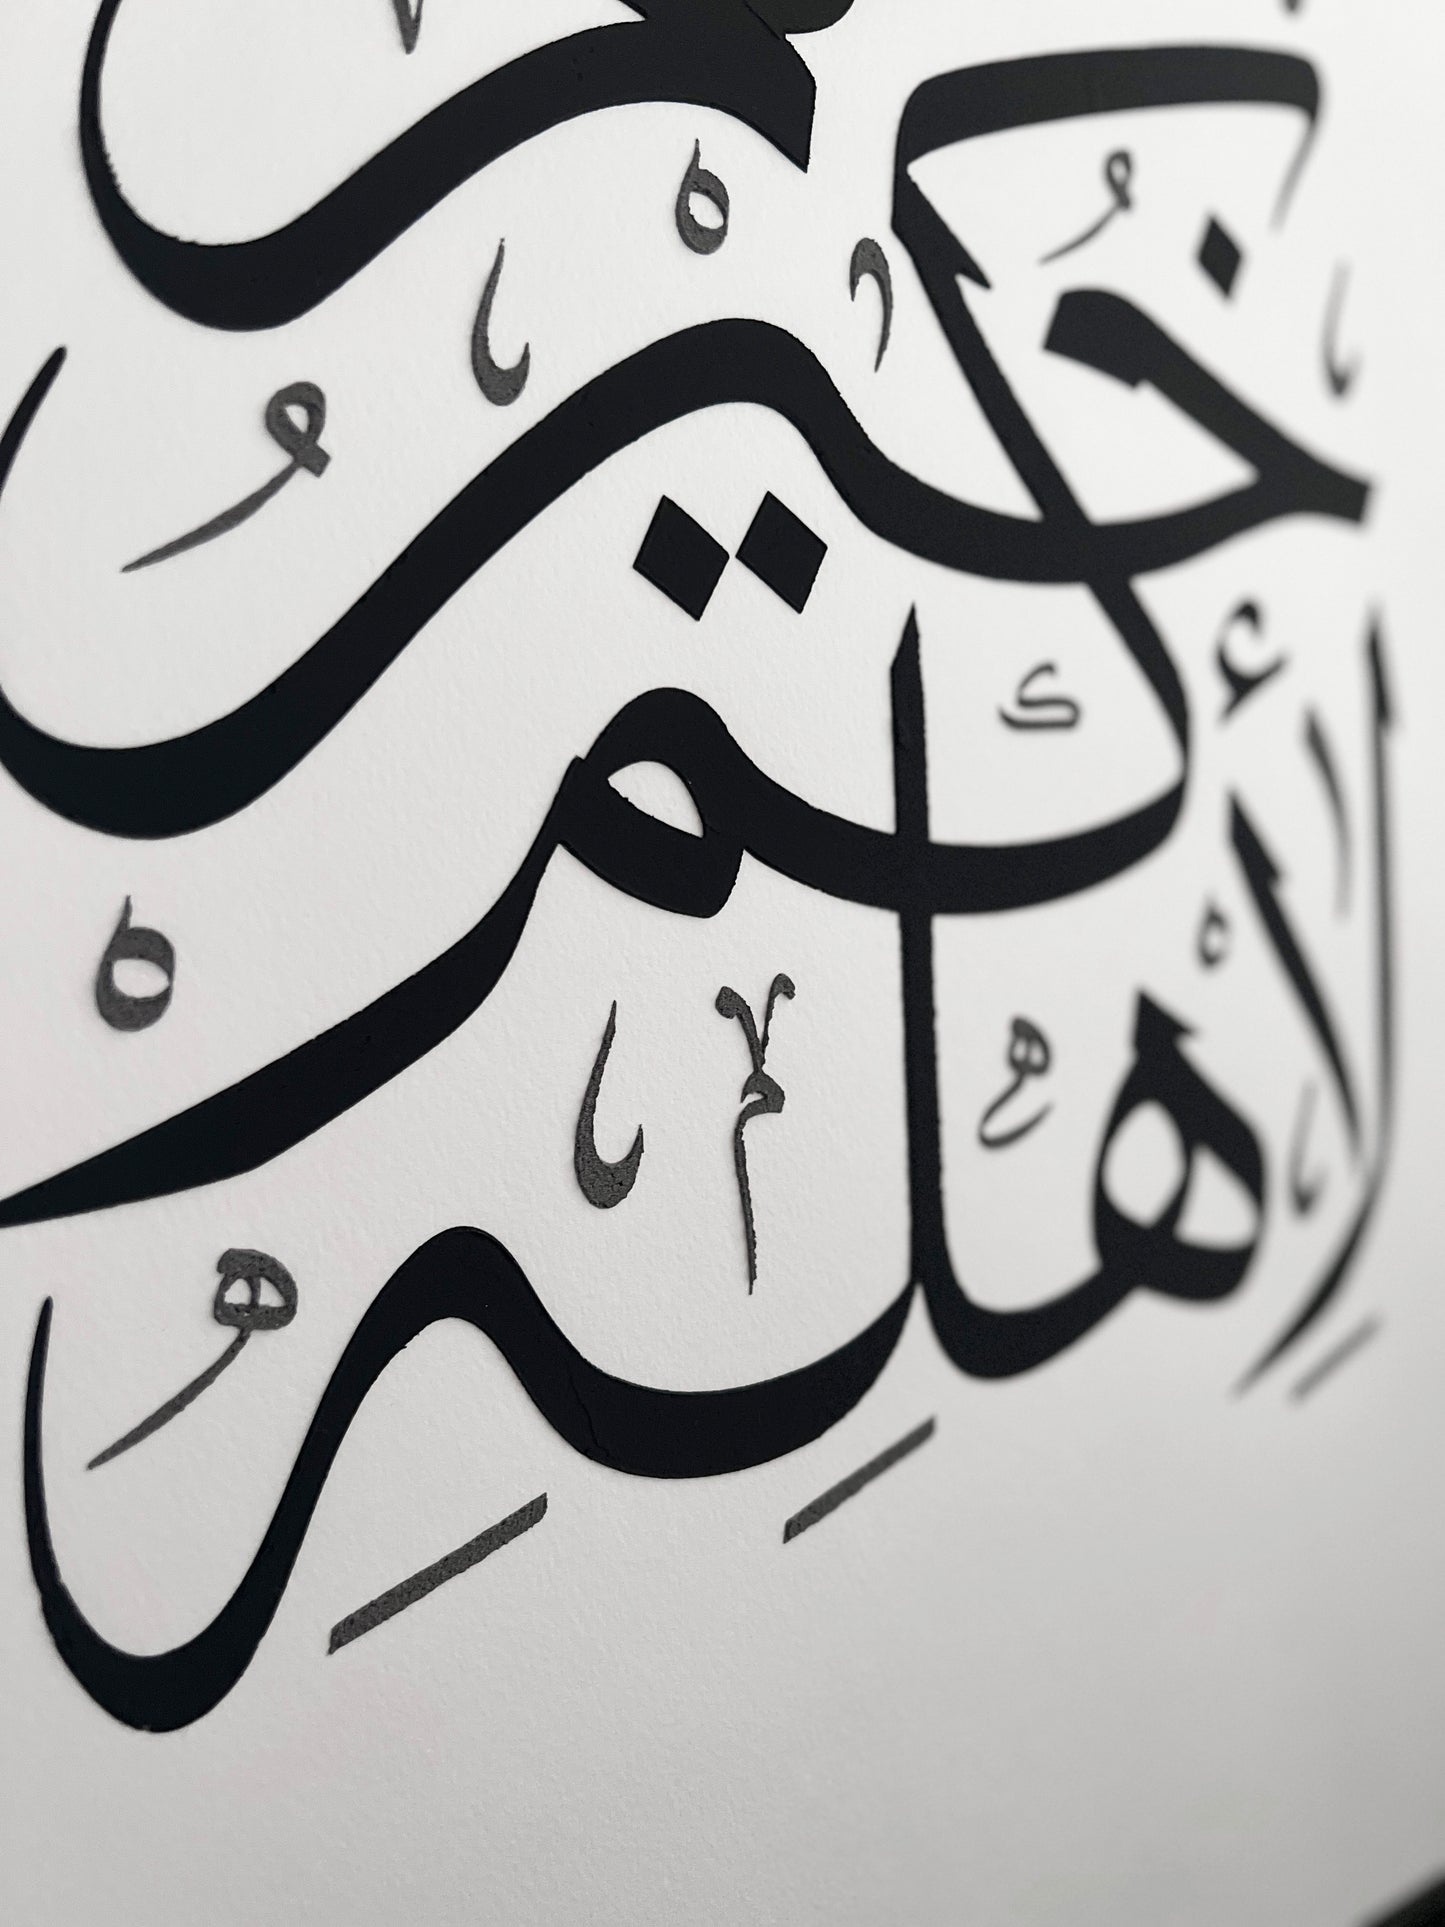 خَيْرُكُمْ
لِأَهْلِهِ